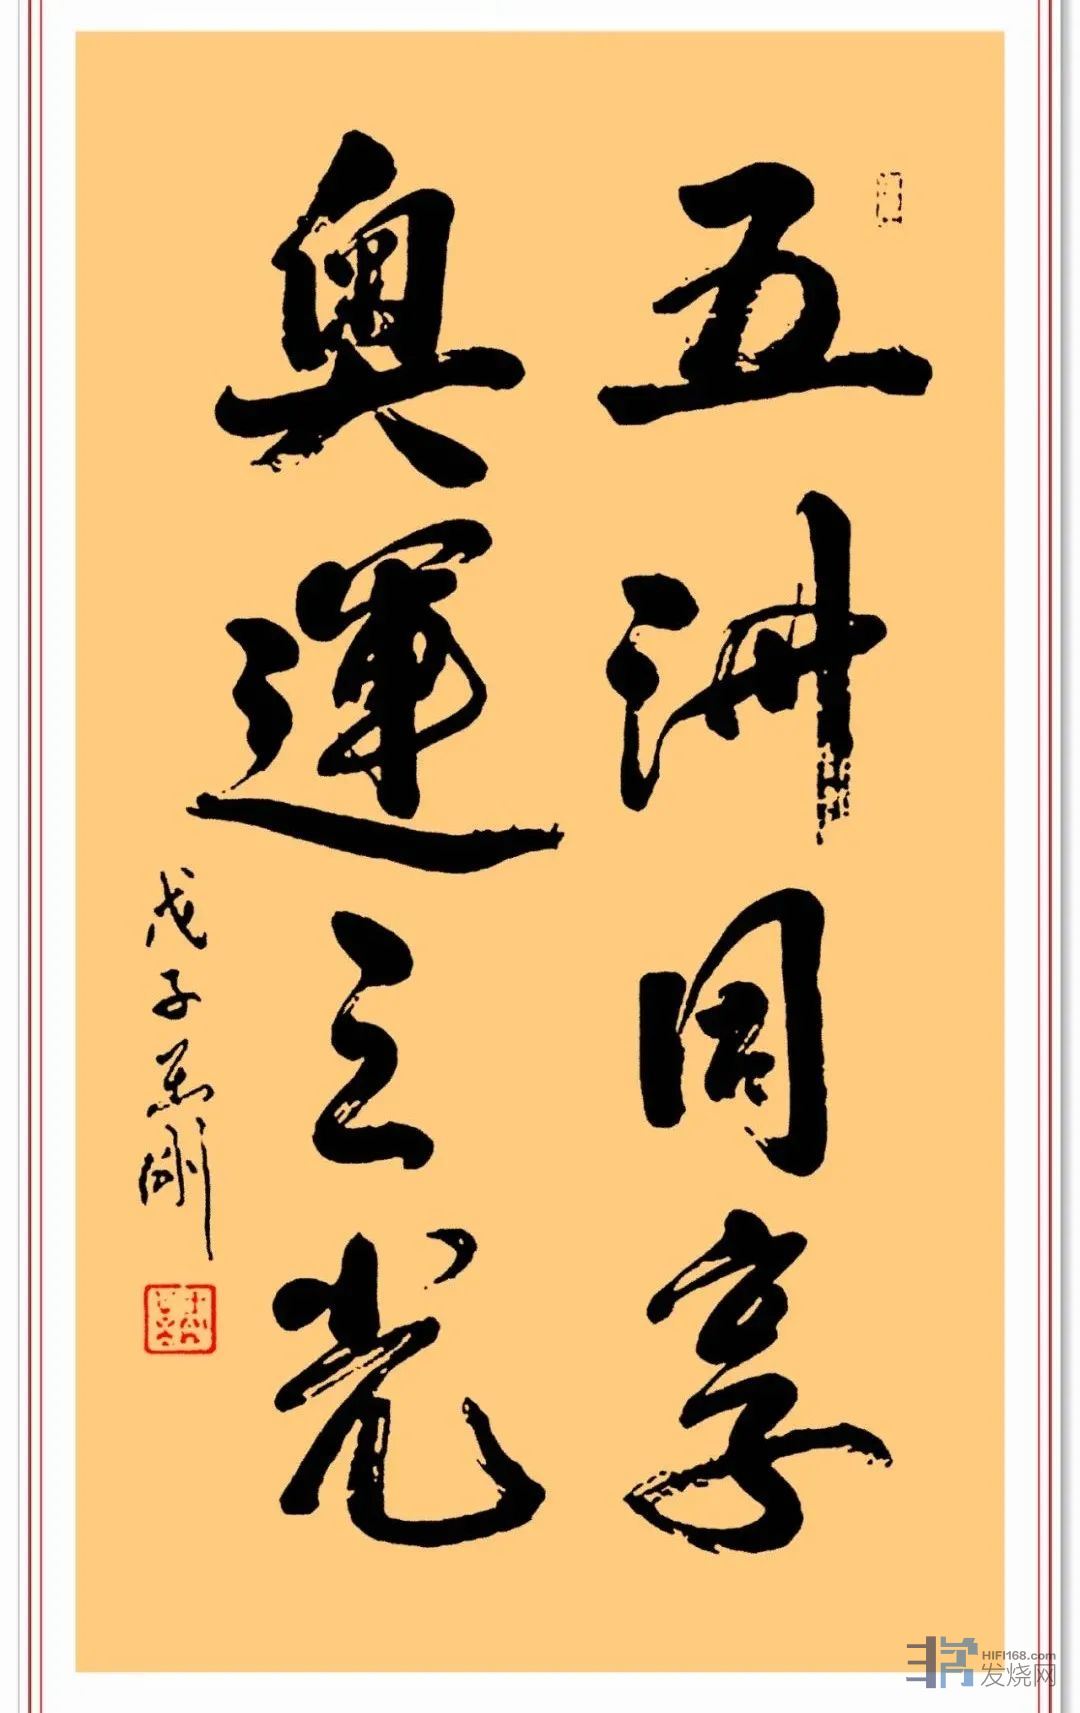 五洲同享
奥運之光
戊子 刚
HIFI168.com
发烧网